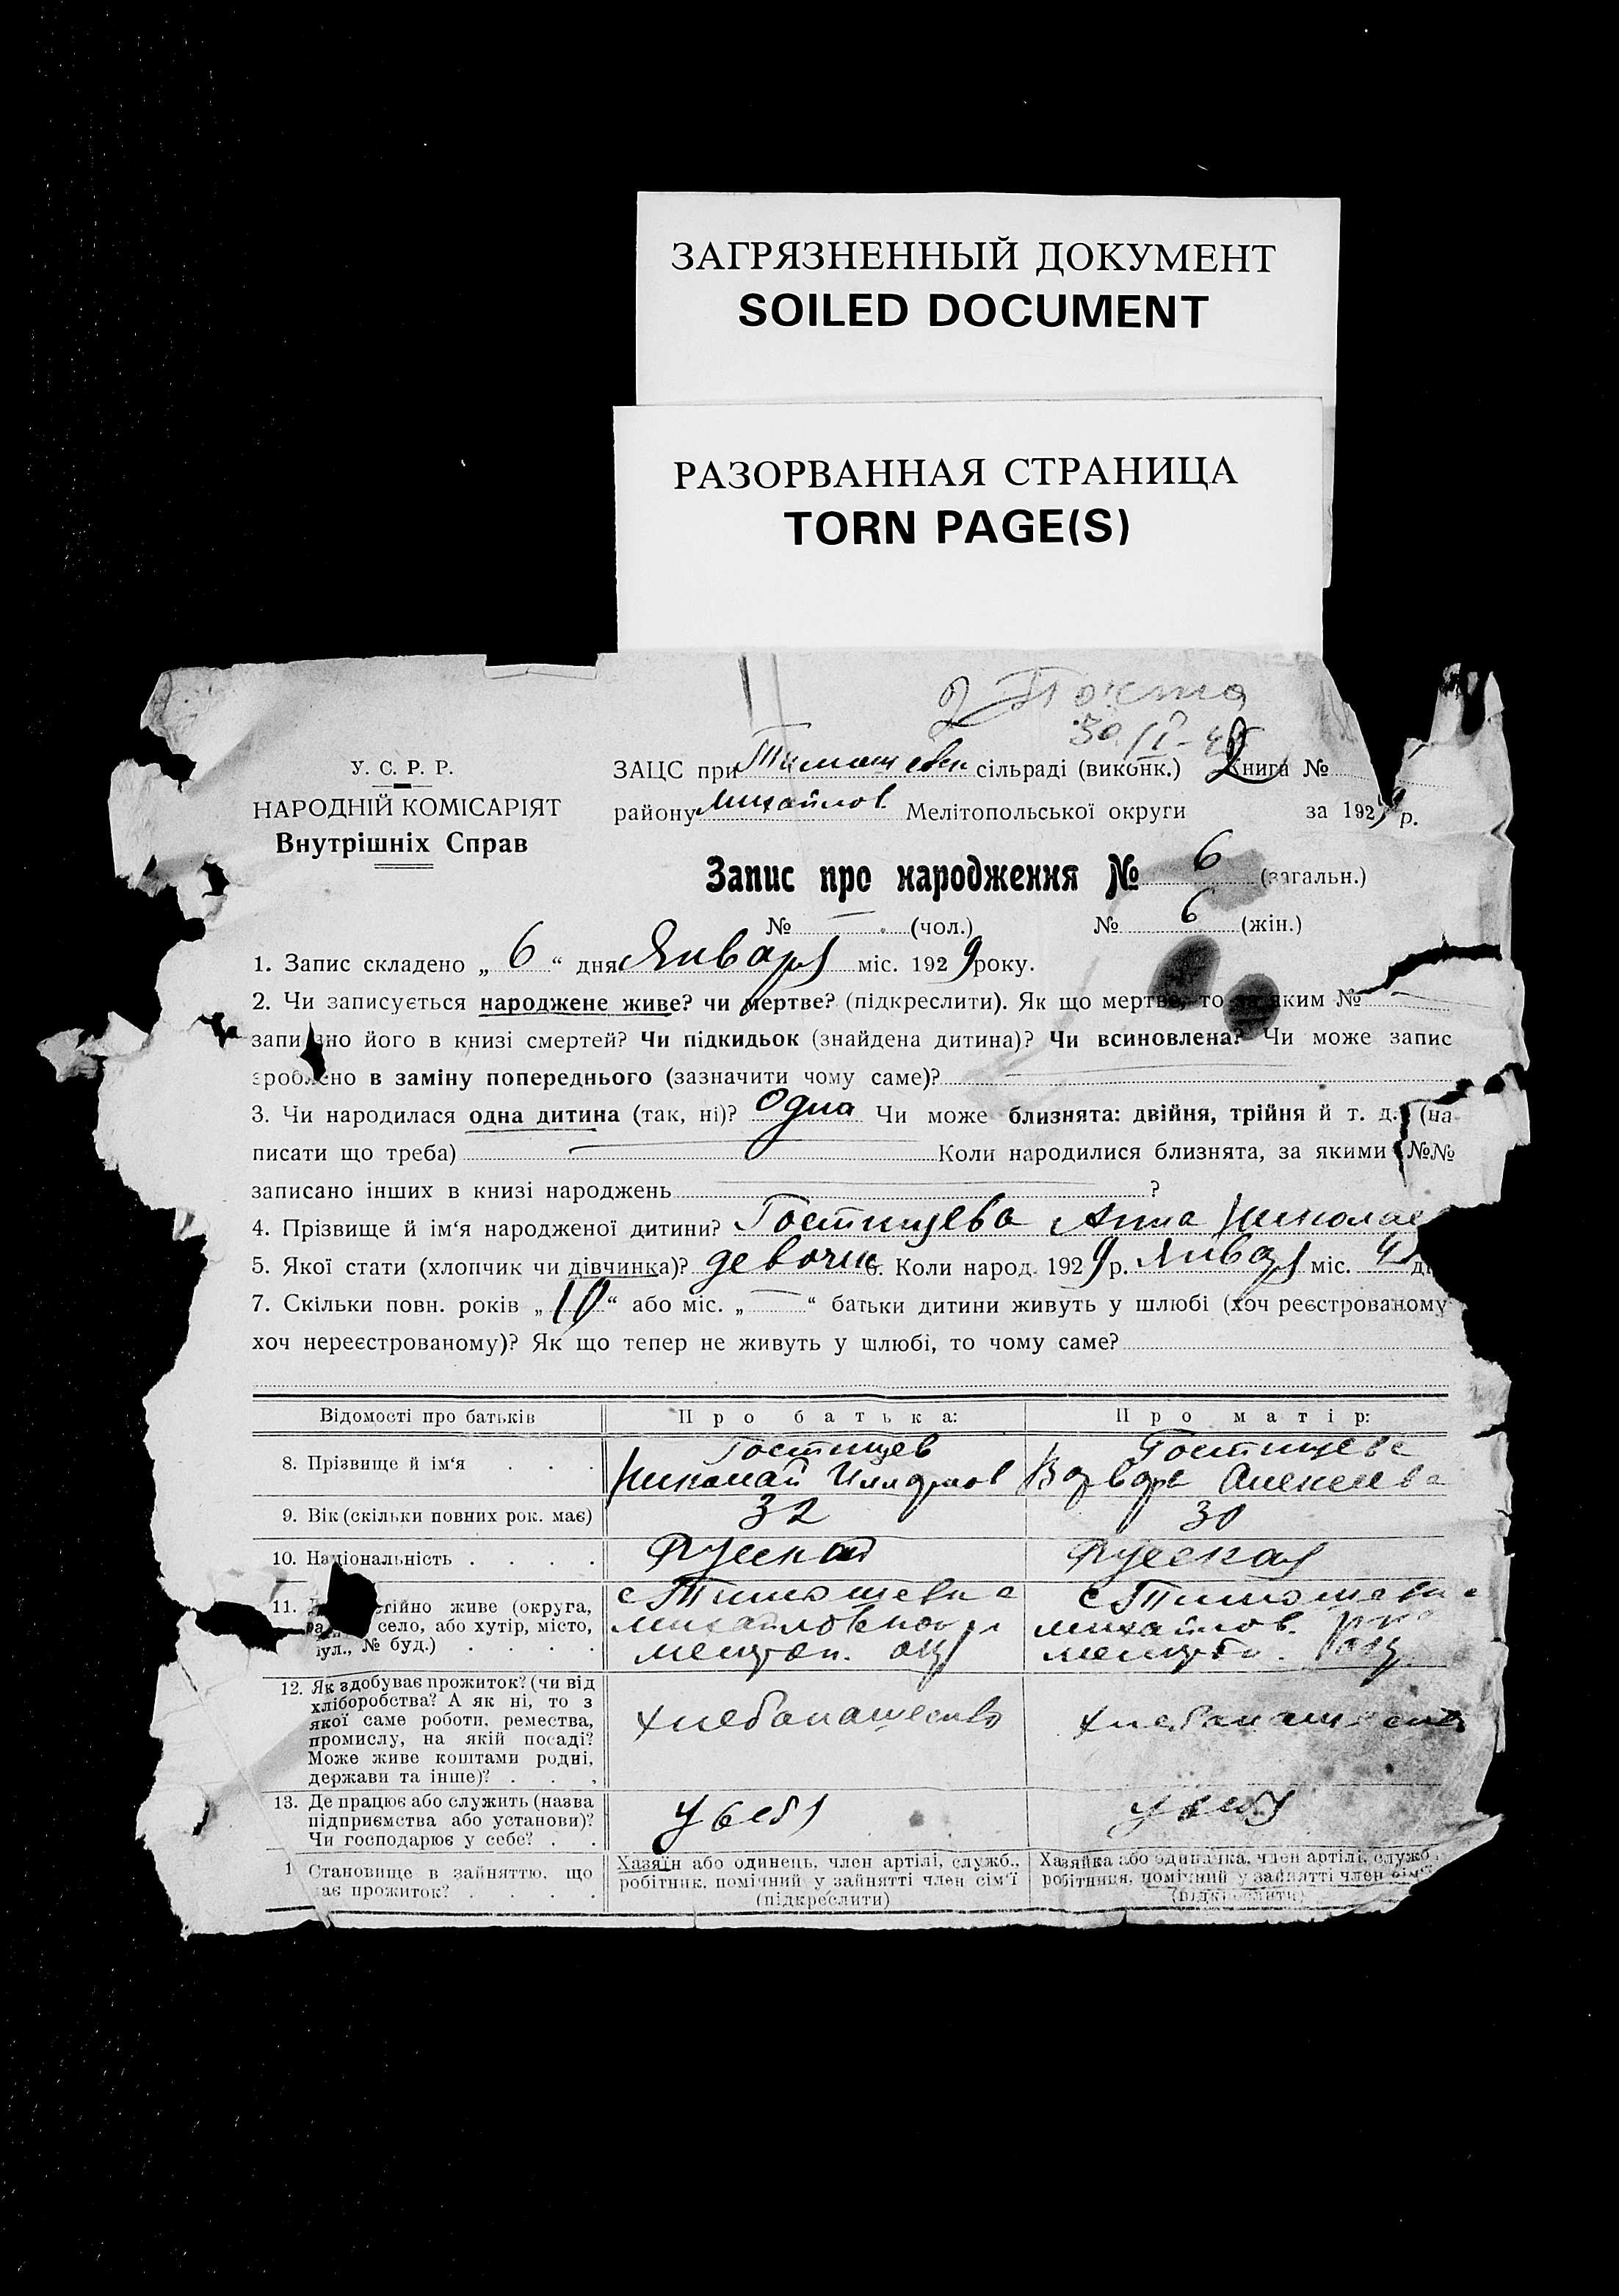 ЗАГРЯЗНЕННЫЙ ДОКУМЕНТ
SOILED DOCUMENT
РАЗОРВАННАЯ СТРАНИЦА
TORN PAGE(S)
У. С. Р. Р.
НАРОДНІЙ КОМІСАРІЯТ
Внутрішніх Справ
ЗАЦС при Тимошевк сільраді (виконк.) Книга №
району Михайлов. Мелітопольської округи за 1929 р.
Запис про народження № 6 (загальн.)
№ — (чол.) № 6 (жін.)
1. Запис складено „ 6 “ дня Января міс. 1929 року.
2. Чи записується народжене живе? чи мертве? (підкреслити). Як що мертве, то за яким №
записано його в книзі смертей? Чи підкидьок (знайдена дитина)? Чи всиновлена? Чи може запис
зроблено в заміну попереднього (зазначити чому саме)?
3. Чи народилася одна дитина (так, ні)? Одна Чи може близнята: двійня, трійня й т. д. (на-
писати що треба) Коли народилися близнята, за якими №№
записано інших в книзі народжень ?
4. Прізвище й ім‘я народженої дитини? Гостищева Анна Николае
5. Якої стати (хлопчик чи дівчинка)? девочк 6. Коли народ. 1929 р. Января міс. 4
7. Скільки повн. років „ 10 “ або міс. „ — “ батьки дитини живуть у шлюбі (хоч реєстрованому
хоч нереєстрованому)? Як що тепер не живуть у шлюбі, то чому саме?
Відомості про батьків Про батька: Про матір:
8. Прізвище й ім‘я . . . Гостищев Гостищева
Николай Варвара Алексеева
9. Вік (скільки повних рок. має) 32 30
10. Національність . . . . Руский Руская
11. стійно живе (округа, с Тимошевка с Тимошевка
село, або хутір, місто, Михайловског Михайлов.
вул., № буд.) . . . . Мелитоп. окр Мелитоп. окр
12. Як здобуває прожиток? (чи від
хліборобства? А як ні, то з
якої саме роботи, ремества, хлебопашество хлебопашество
промислу, на якій посаді?
Може живе коштами родні,
держави та інше)? . . .
13. Де працює або служить (назва
підприємства або установи)? У себя У себя
Чи господарює у себе? . .
1 Становище в зайняттю, що Хазяїн або одинець, член артілі, служб., Хазяйка або одиначка, член артілі, служб.
ає прожиток? . . . . робітник, помічний у зайнятті член сім‘ї робітниця, помічний у зайнятті член сім‘ї
(підкреслити) (підкреслити)